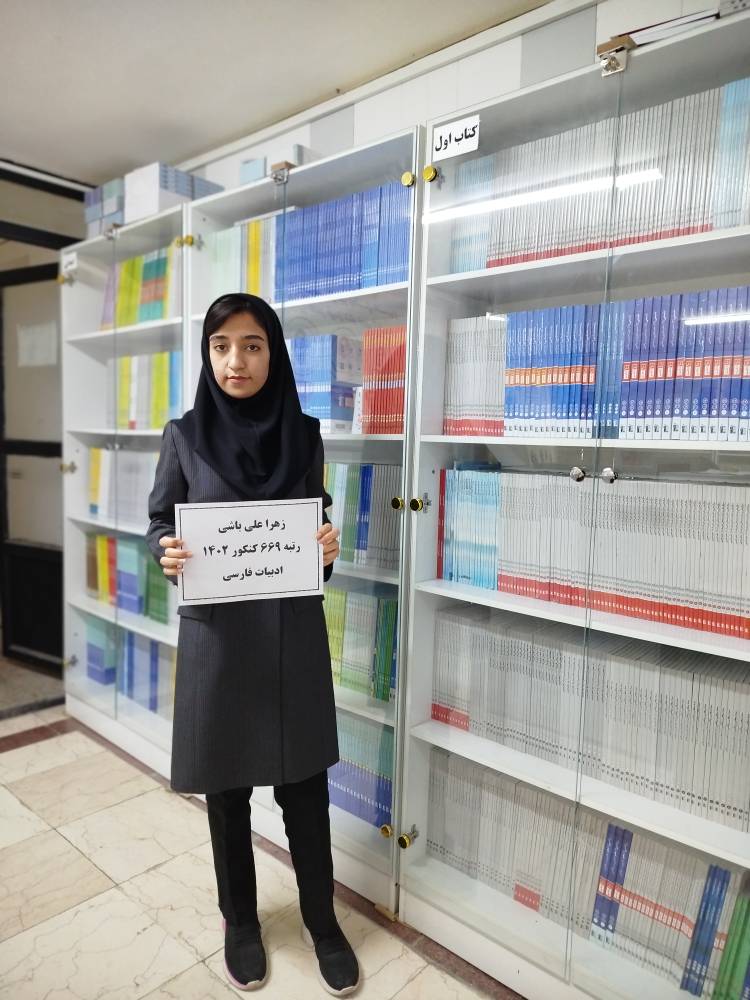 کتاب اول
زهرا علی باشی
رتبه ۶۶۹ کنکور ۱۴۰۲
ادبیات فارسی